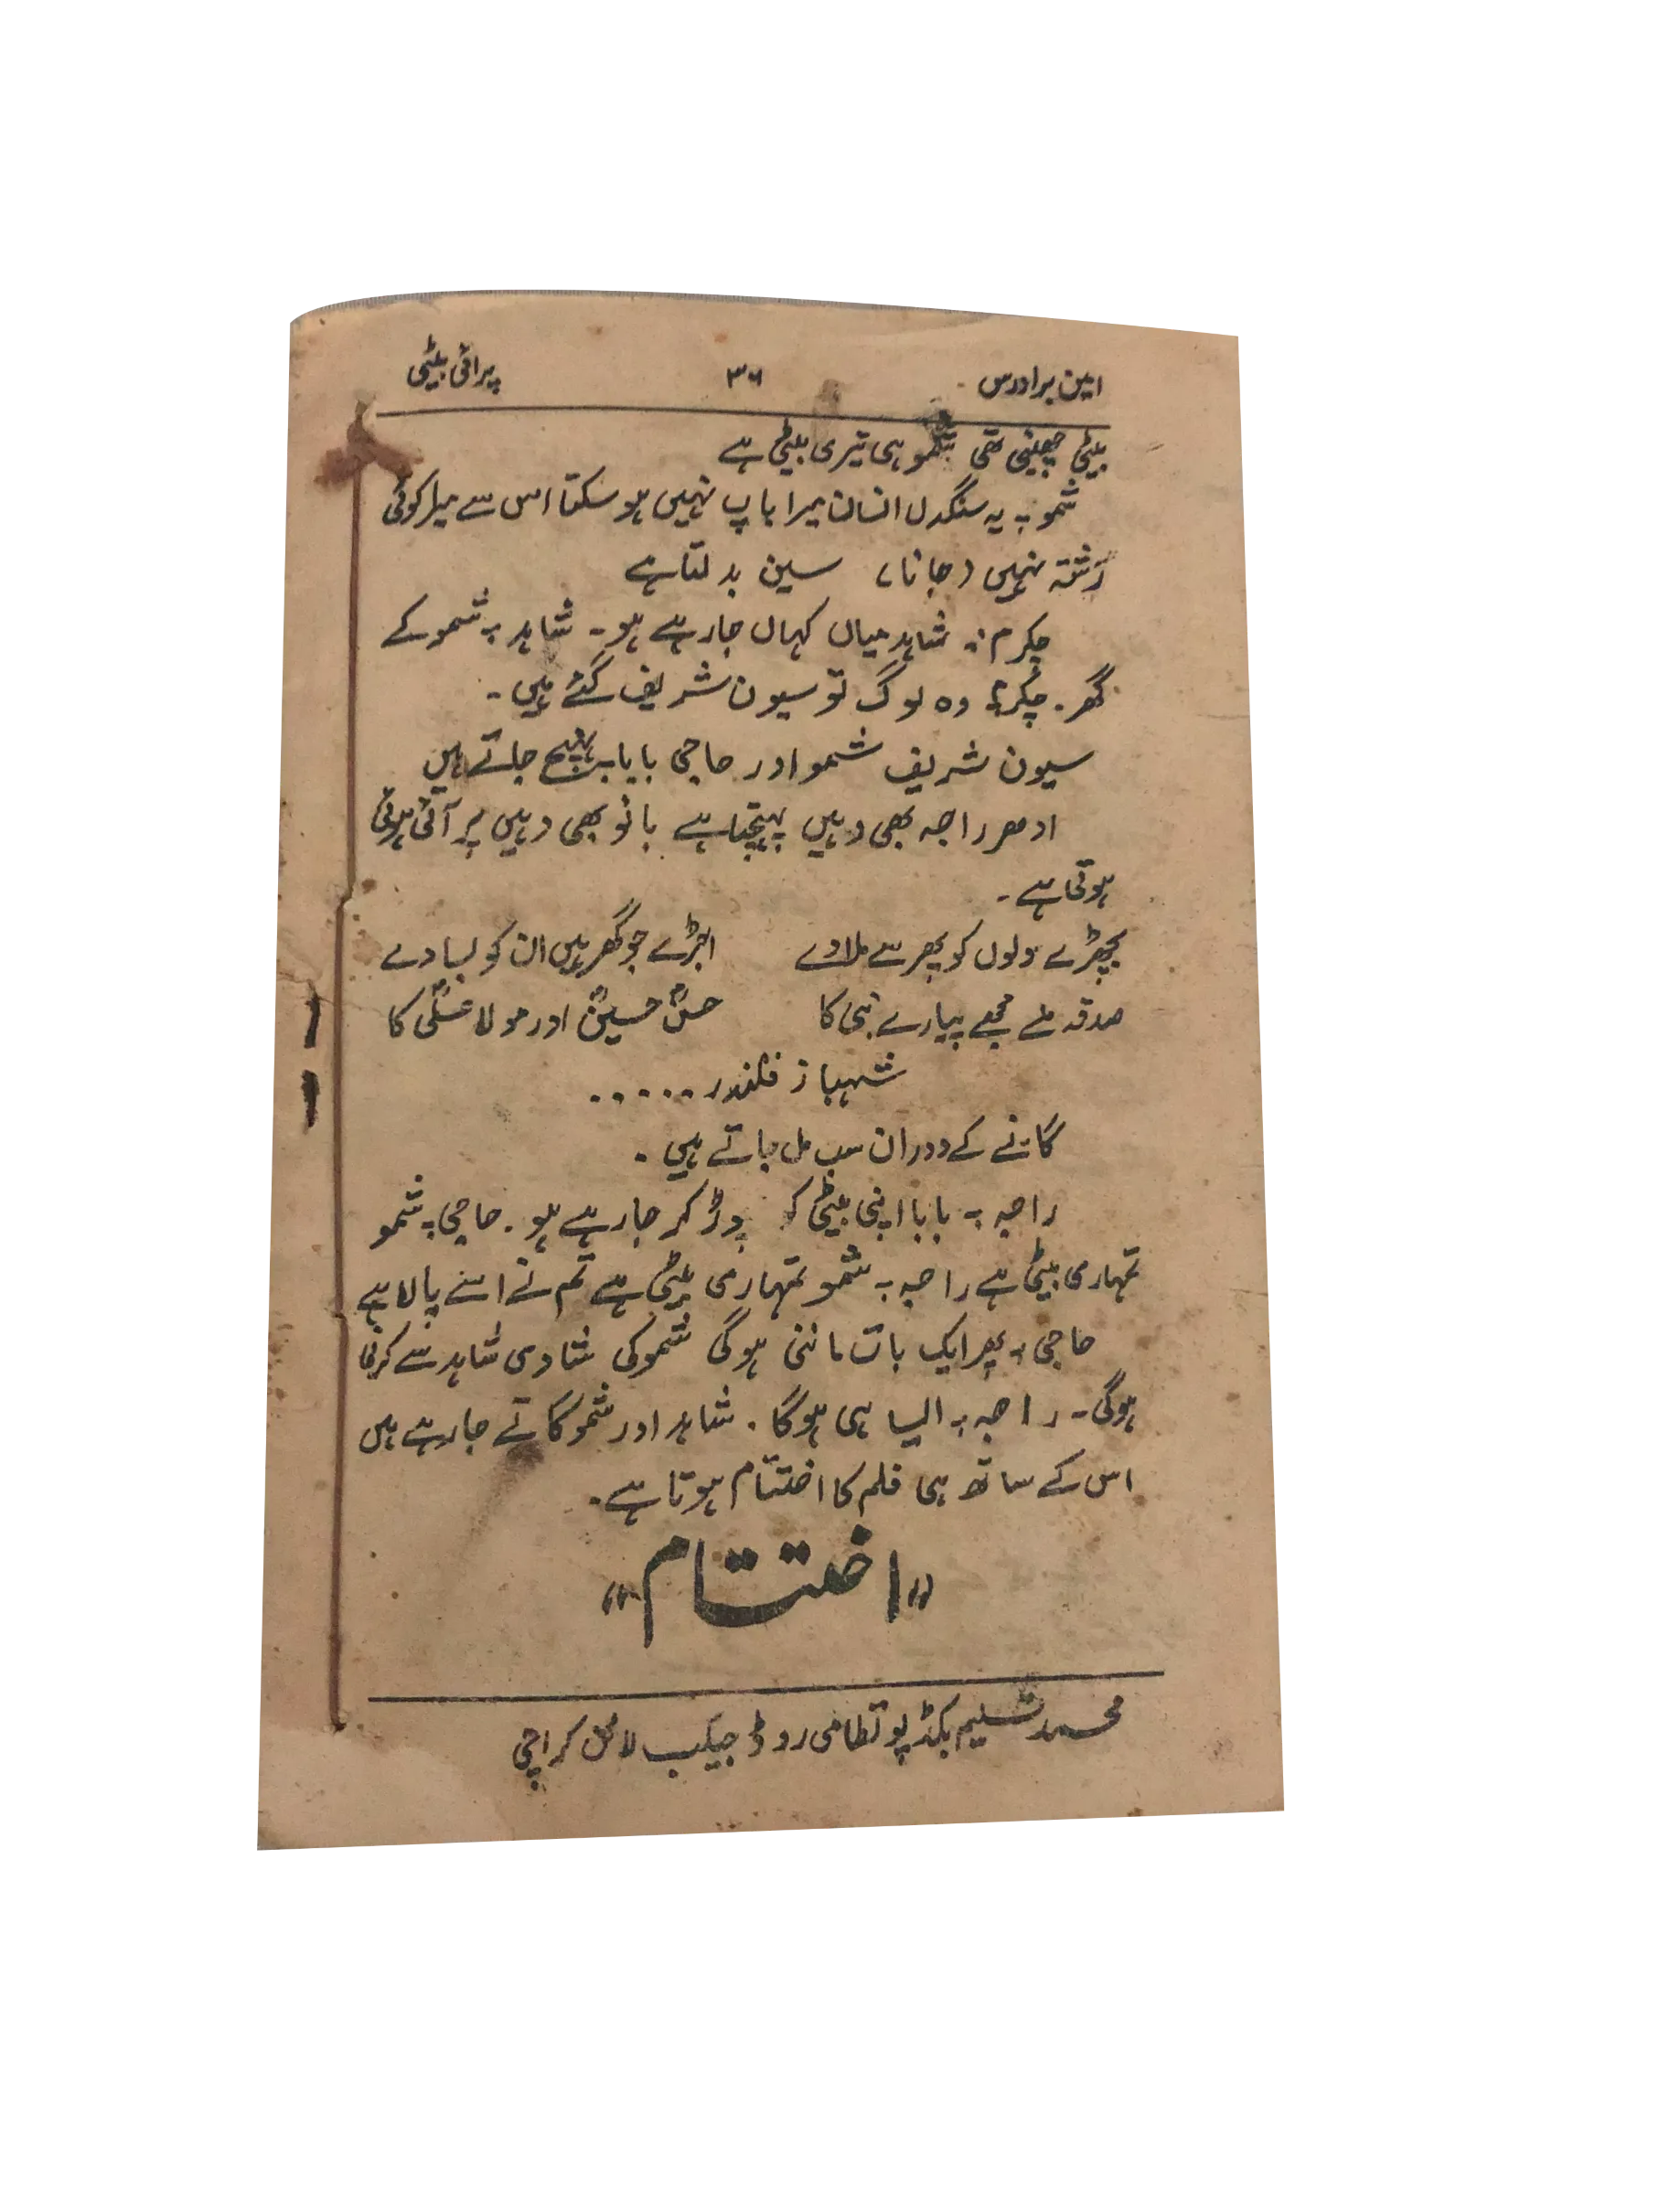 امین برادرس ۳۶ پرائی بیٹی
بیٹی چھینی تھی شمو ہی تیری بیٹی ہے
شمو :۔ یہ سنگدل انسان میرا باپ نہیں ہو سکتا اس سے میرا کوئی
رشتہ نہیں (جانا) سین بدلتا ہے
چکرم :۔ شاہد میاں کہاں جارہے ہو۔ شاہد :۔ شمو کے
گھر۔ چکرم :۔ وہ لوگ تو سیون شریف گئے ہیں۔
سیون شریف شمو اور حاجی بابا پہنچ جاتے ہیں
ادھر راجہ بھی وہیں پہنچتا ہے بانو بھی وہیں پر آئی ہوئی
ہوتی ہے۔
بچھڑے دلوں کو پھر سے ملا دے اجڑے جو گھر ہیں ان کو بسا دے
صدقہ ملے مجھے پیارے نبی کا حسنؓ حسینؓ اور مولا علیؓ کا
شہباز قلندر ......
گانے کے دوران سب مل جاتے ہیں۔
راجہ :۔ بابا اپنی بیٹی کو چھوڑ کر جارہے ہو۔ حاجی :۔ شمو
تمہاری بیٹی ہے راجہ :۔ شمو تمہاری بیٹی ہے تم نے اسے پالا ہے
حاجی :۔ پھر ایک بات ماننی ہوگی شمو کی شادی شاہد سے کرنا
ہوگی۔ راجہ :۔ ایسا ہی ہوگا۔ شاہد اور شمو گاتے جارہے ہیں
اس کے ساتھ ہی فلم کا اختتام ہوتا ہے۔
"اختتام"
محمد سلیم بکڈپو نظامی روڈ جیکب لائن کراچی